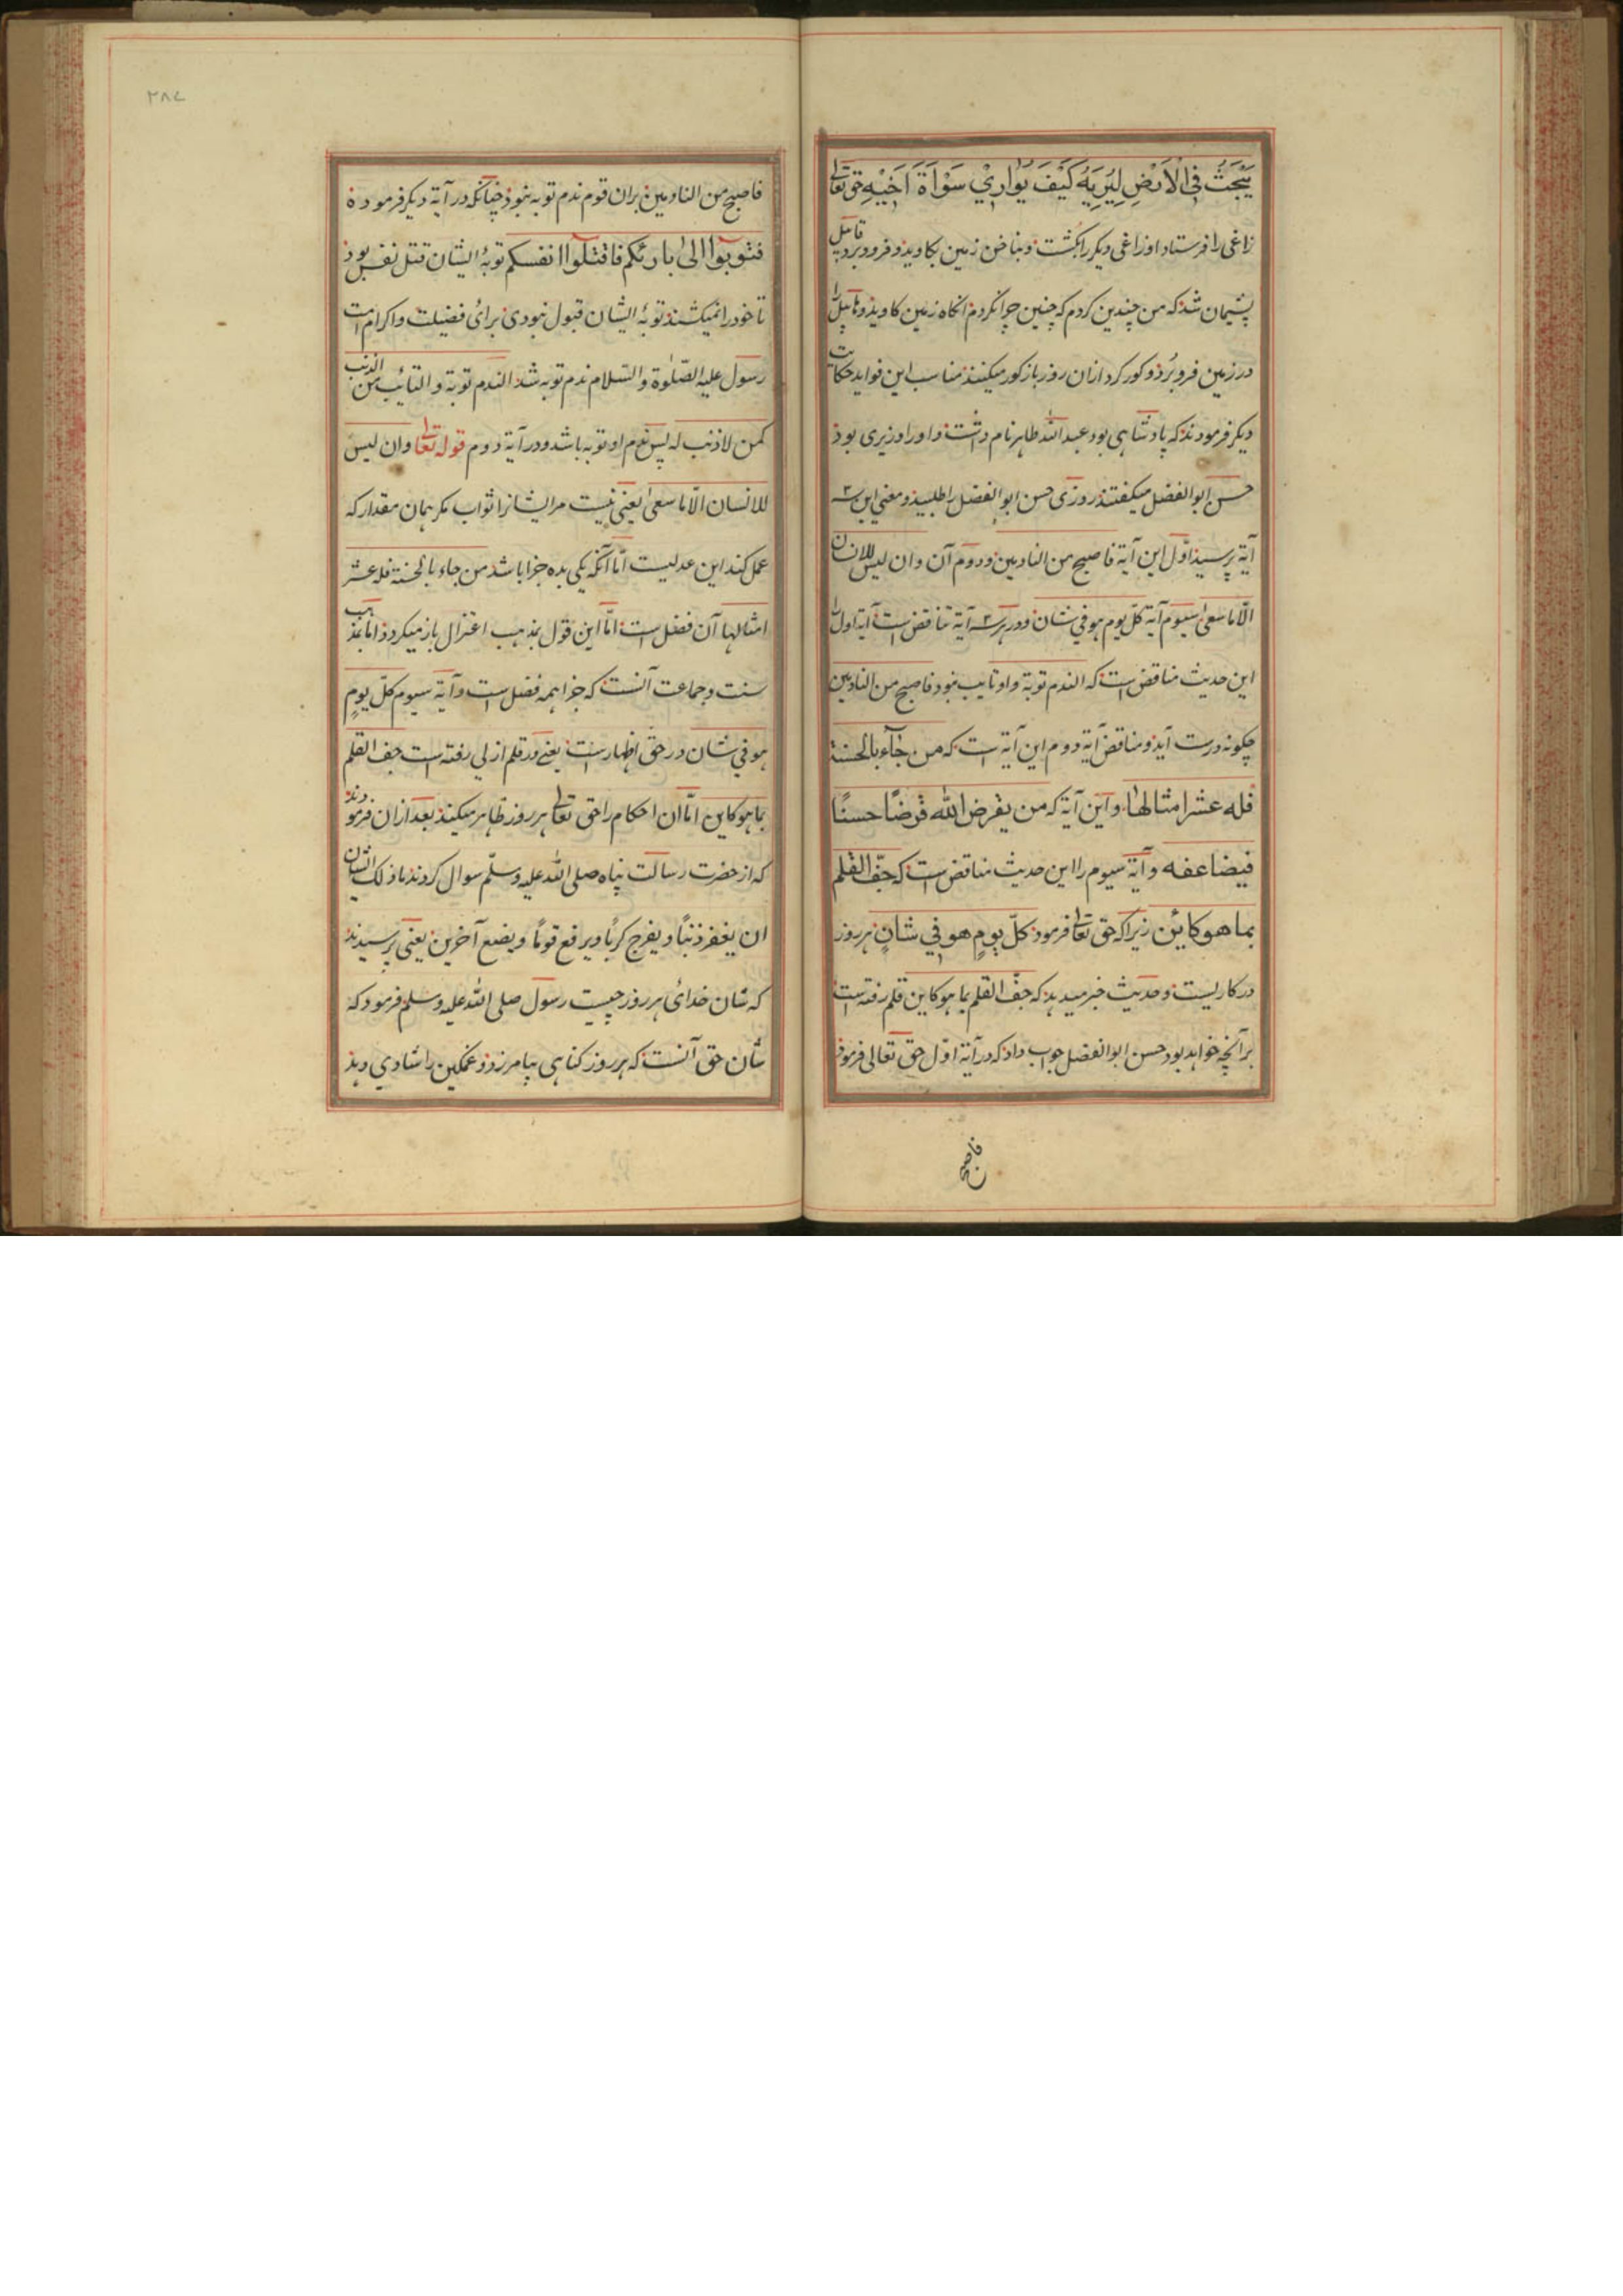 يَبْحَثُ فِي الْاَرْضِ لِيُرِيَهُ كَيْفَ يُوَارِيْ سَوْاَةَ اَخِيْهِ حق تعالى
زاغی را فرستاد او زاغی دیکر را بکشت و بناخن زمین بکاوید و فرو برد قابیل
پشیمان شد که من چندین کردم که چنین چرا نکردم انکاه زمین کاوید و هابیل را
در زمین فرو برُد و کور کرد ازان روز باز کور میکنند مناسب این فواید حکایت
دیکر فرمودند که پادشاهی بود عبد الله طاهر نام داشت و او را وزیری بوذ
حسن ابو الفضل میکفتند روزی حسن ابو الفضل را طلبید و معنی این سه
آیة پرسید اوّل این آیة فاصبح من النادمین و دوم آن وان لیس للانسان
الّا ما سعیٰ سیوم آیة کلّ یوم هو في شان و در هر سه آیة تناقض است آیة اول را
این حدیث مناقض است که الندم توبة و او تایب نبود فاصبح من النادمین
چکونه درست آید و مناقض آیة دوم این آیة است که من جآء بالحسنة
فله عشر امثالها و این آیة که من یقرض الله قرضًا حسنًا
فیضاعفه و آیة سیوم را این حدیث مناقض است که جفّ القلم
بما هو کائن زیرا که حق تعالی فرموذ کلّ یومٍ هو في شانٍ هر روز
در کاریست و حدیث خبر میدهد که جفّ القلم بما هو کاین قلم رفته است
برآنچه خواهد بود حسن ابو الفضل جواب داد که در آیة اوّل حق تعالی فرموذ
فاصبح
۲۸۷
فاصبح من النادمین بران قوم ندم توبه نبوذ چنانکه در آیة دیکر فرموده
فتوبوا الیٰ بارئکم فاقتلوا انفسکم توبهٔ ایشان قتل نفس بوذ
تا خود را نمیکشتند توبهٔ ایشان قبول نبودی برای فضیلت و اکرام امت
رسول علیه الصّلوٰة والسّلام ندم توبه شد الندم توبة و التائب من الذنب
کمن لا ذنب له پس ندم او توبه باشد و در آیة دوم قوله تعالى وان لیس
للانسان الّا ما سعیٰ یعنی نیست مر ایشانرا ثواب مکر همان مقدار که
عمل کند این عدلیست امّا آنکه یکی بده جزا باشد من جاء بالحسنة فله عشر
امثالها آن فضل است امّا این قول بمذهب اعتزال باز میکردد امّا بمذهب
سنت و جماعت آنست که جزا همه فضل است و آیة سیوم کلّ یومٍ
هو في شان در حق اظهار است یعنی در قلم ازلي رفته است جف القلم
بما هو کاین امّا ان احکام را حق تعالی هر روز ظاهر میکند بعد ازان فرمودند
که از حضرت رسالت پناه صلی الله علیه وسلّم سوال کردند ما ذلک الشان
ان یغفر ذنبًا و یفرج کربًا و یرفع قومًا و یضع آخرین یعنی پرسیدند
که شان خدای هر روز چیست رسول صلی الله علیه وسلم فرمود که
شان حق آنست که هر روز کناهی بیامرزد و غمکین را شادي دهد